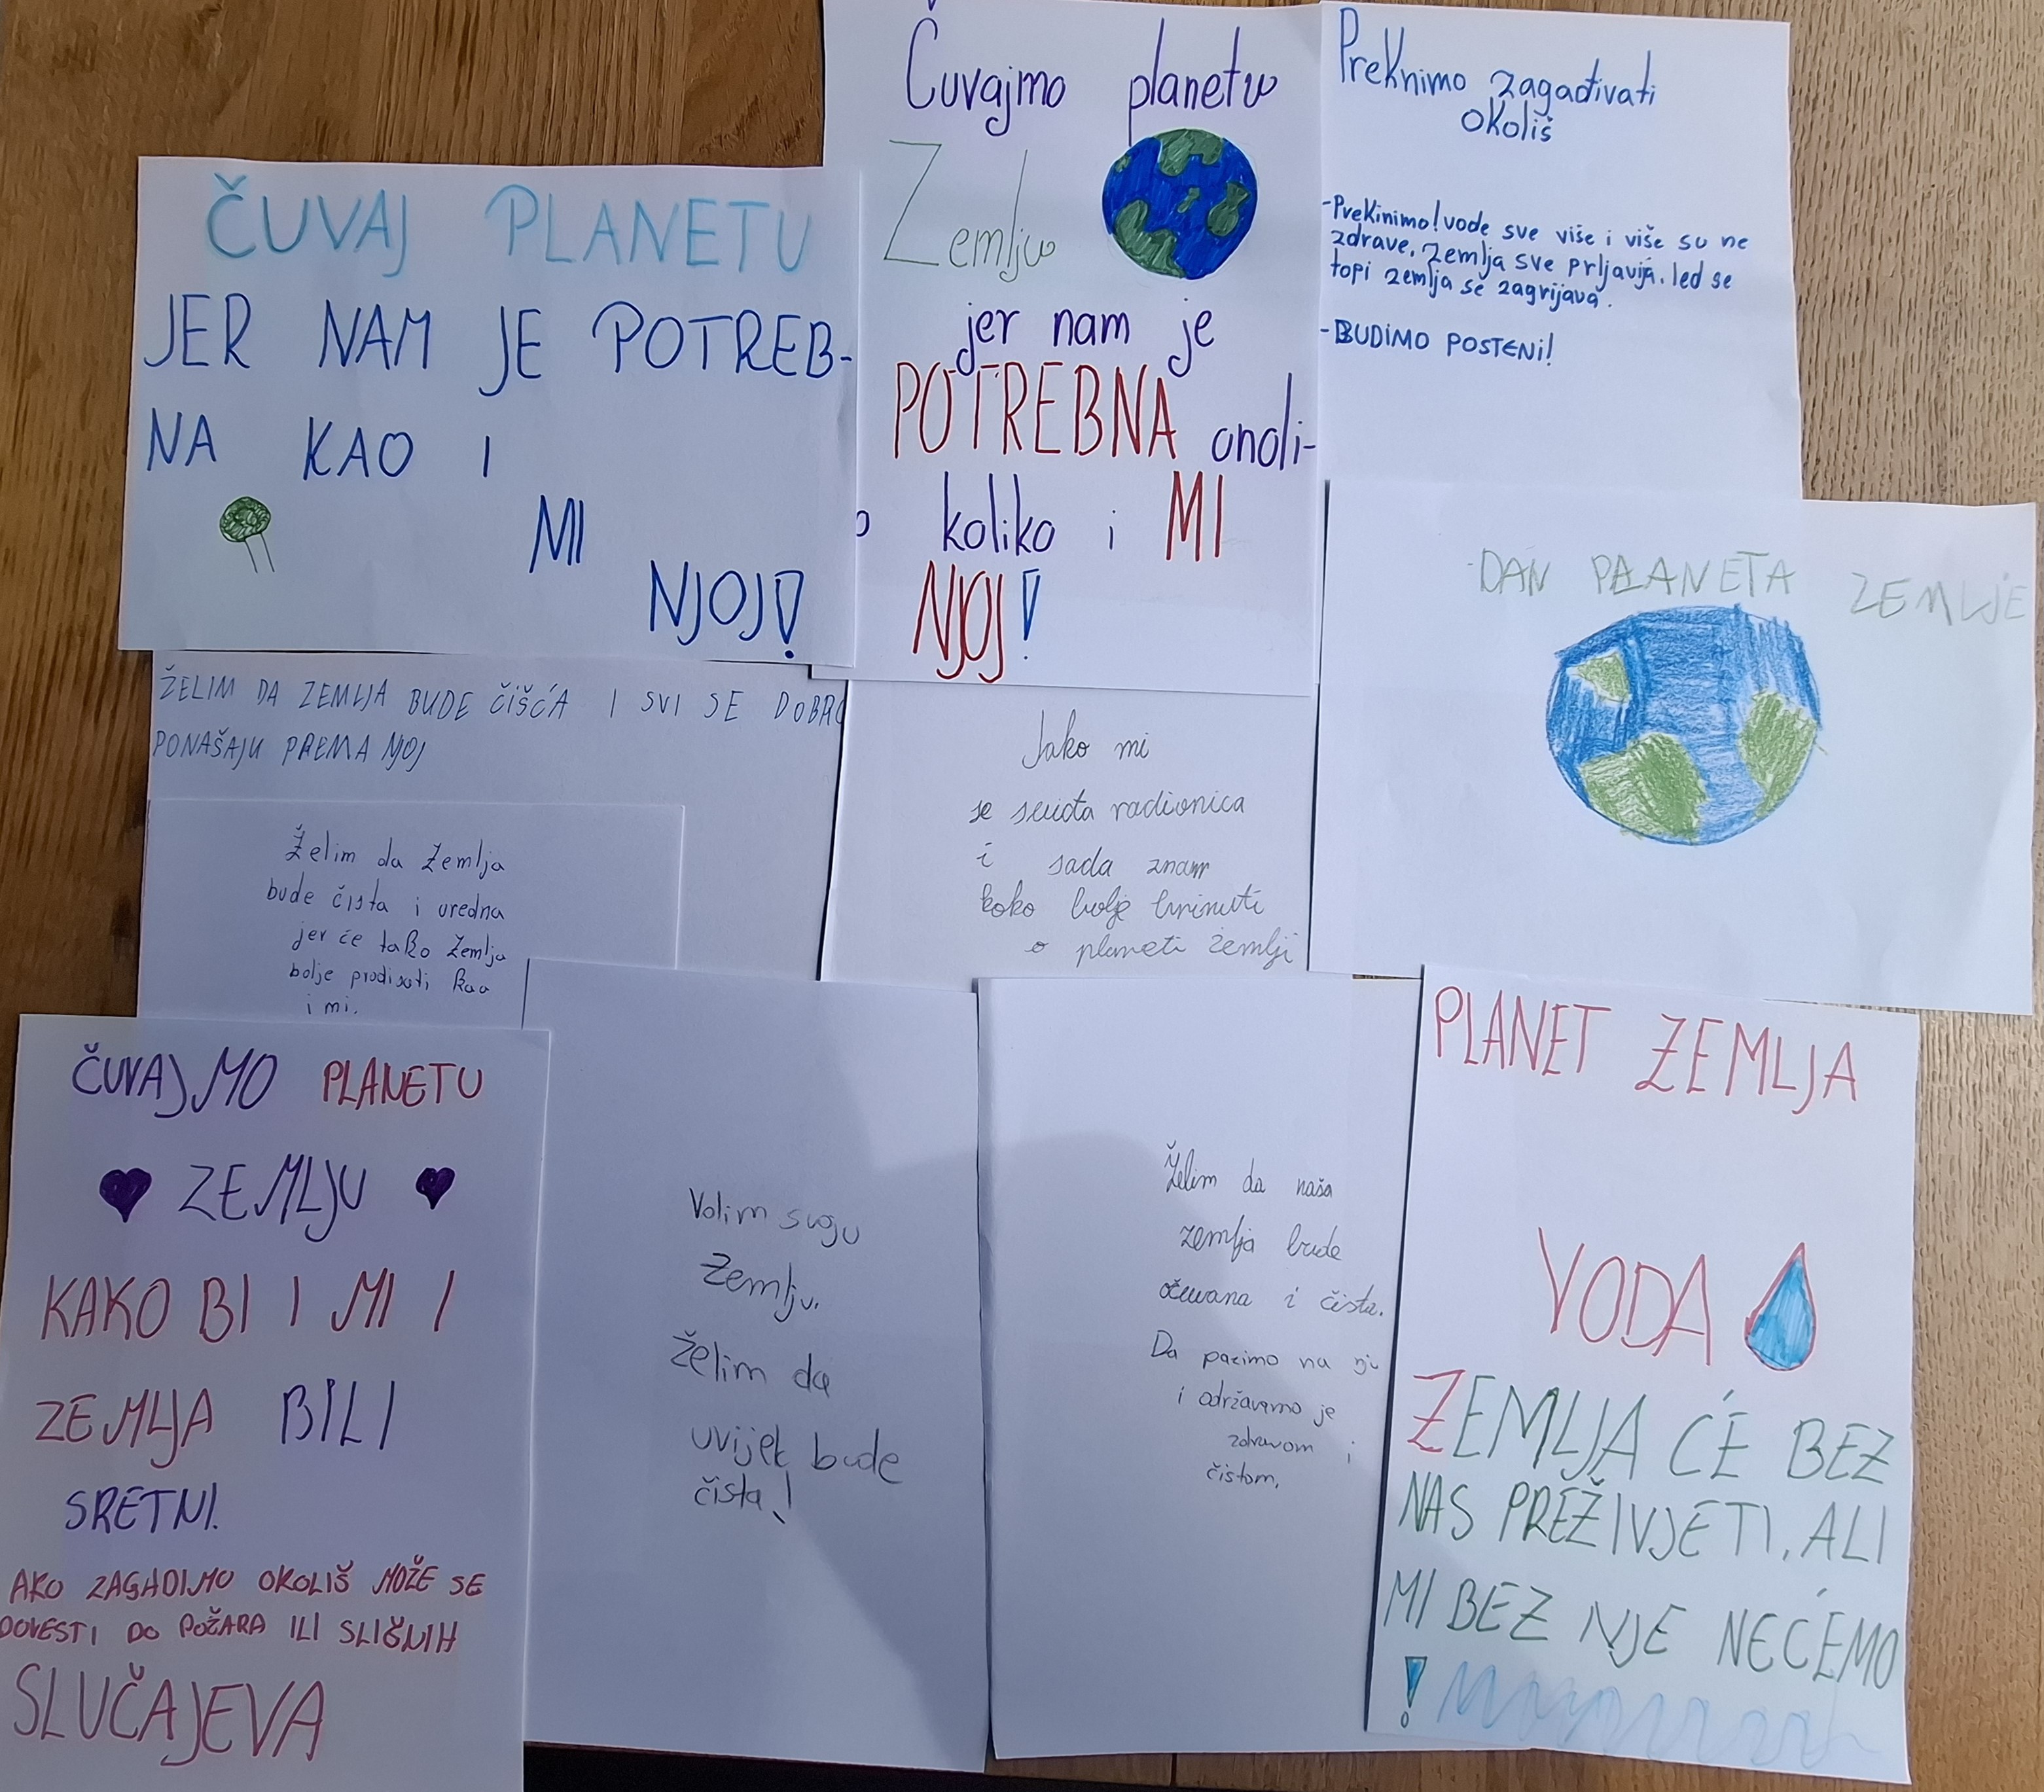 ČUVAJ PLANETU
JER NAM JE POTREB-
NA KAO I
MI
NJOJ!
Čuvajmo planetu
Zemlju
jer nam je
POTREBNA onoli-
o koliko i MI
NJOJ!
Preknimo zagađivati
okoliš
-Prekinimo! vode sve više i više su ne
zdrave, zemlja sve prljavija, led se
topi zemlja se zagrijava.
-BUDIMO POSTENI!
DAN PLANETA ZEMLJE
ŽELIM DA ZEMLJA BUDE ČIŠĆA I SVI SE DOBRO
PONAŠAJU PREMA NJOJ
Želim da Zemlja
bude čista i uredna
jer će tako Zemlja
bolje prodisati kao
i mi.
Jako mi
se sviđa radionica
i sada znam
kako bolje brinuti
o planeti zemlji
ČUVAJMO PLANETU
ZEMLJU
KAKO BI I MI I
ZEMLJA BILI
SRETNI.
AKO ZAGADIMO OKOLIŠ MOŽE SE
DOVESTI DO POŽARA ILI SLIČNIH
SLUČAJEVA
Volim svoju
Zemlju.
Želim da
uvijek bude
čista!
Želim da naša
zemlja bude
očuvana i čista.
Da pazimo na nju
i održavamo je
zdravom i
čistom.
PLANET ZEMLJA
VODA
ZEMLJA ĆE BEZ
NAS PREŽIVJETI, ALI
MI BEZ NJE NEĆEMO
!